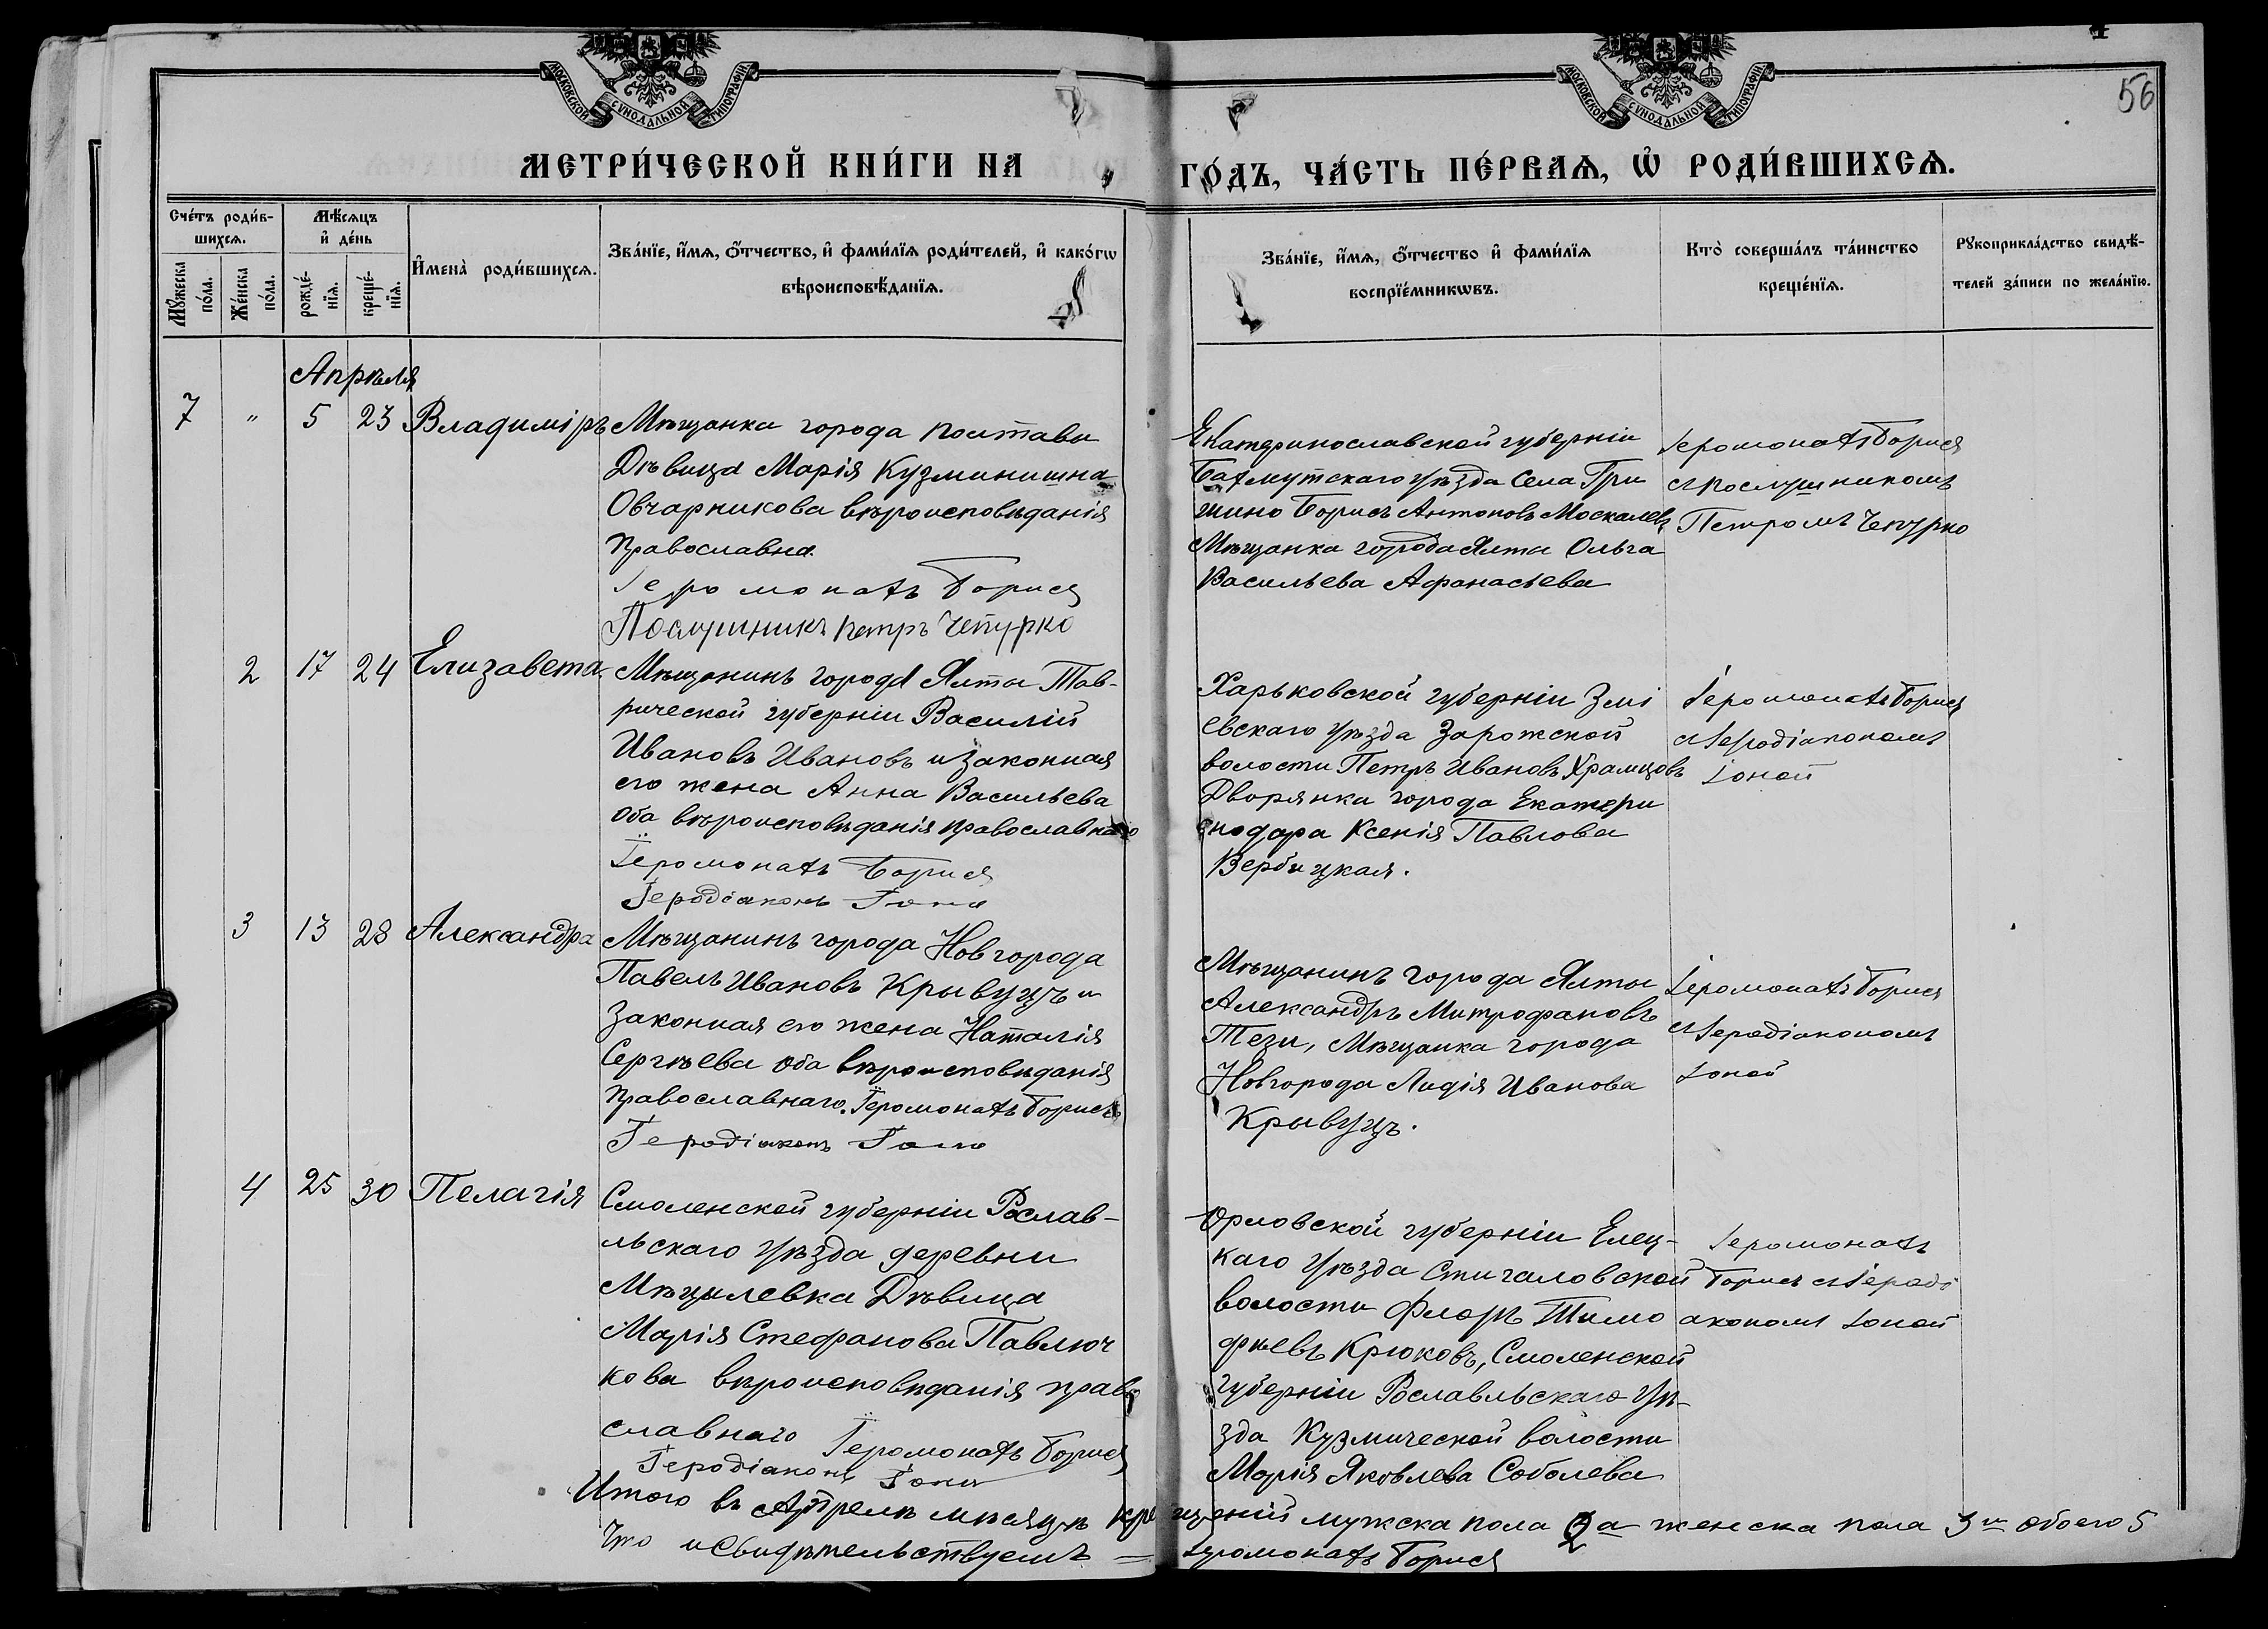 МОСКОВСКОЙ СѴНОДАЛЬНОЙ ТИПОГРАФІИ
МОСКОВСКОЙ СѴНОДАЛЬНОЙ ТИПОГРАФІИ
56
МЕТРИ́ЧЕСКОЙ КНИ́ГИ НА
ГО́ДЪ, ЧА́СТЬ ПЕ́РВАѦ, Ѡ҆ РОДИ́ВШИХСѦ.
Сче́тъ роди́в-
шихсѧ.
Мѣ́сѧцъ
и҆ де́нь
Мꙋ́жеска
по́ла.
Же́нска
по́ла.
рожде́-
нїѧ.
креще́-
нїѧ.
И҆мена̀ роди́вшихсѧ.
Зва́нїе, и҆́мѧ, ѻ҆́тчество, и҆ фами́лїѧ роди́телей, и҆ како́гѡ
вѣроисповѣ́данїѧ.
Зва́нїе, и҆́мѧ, ѻ҆́тчество и҆ фами́лїѧ
воспрїе́мникѡвъ.
Кто̀ соверша́лъ та́инство
креще́нїѧ.
Рꙋкоприкла́дство свидѣ́-
телей за́писи по жела́нїю.
Апрѣля
7 " 5 23 Владиміръ
Мѣщанка города Полтавы
Дѣвица Марія Кузминишна
Овчарникова вѣроисповѣданія
Православна
Іеромонахъ Борисъ
Послушникъ Петръ Чепурко
Екатеринославской губерніи
Бахмутскаго уѣзда Села Гри
шино Борисъ Антоновъ Москалевъ
Мѣщанка города Ялты Ольга
Васильева Афанасьева
Іеромонахъ Борисъ
съ послушникомъ
Петромъ Чепурко
2 17 24 Елизавета
Мѣщанинъ города Ялты Тав-
рической губерніи Василій
Ивановъ Ивановъ и законная
его жена Анна Васильева
Оба вѣроисповѣданія православнаго
Іеромонахъ Борисъ
Іеродіаконъ Іона
Харьковской губерніи Змі
евскаго уѣзда Зарожской
волости Петръ Ивановъ Храмцовъ
Дворянка города Екатери
нодара Ксенія Павлова
Вербицкая.
Іеромонахъ Борисъ
съ Іеродіакономъ
Іоной
3 13 28 Александра
Мѣщанинъ города Новгорода
Павелъ Ивановъ Крывуцъ и
Законная его жена Наталія
Сергѣева Оба вѣроисповѣданія
Православнаго. Іеромонахъ Борисъ
Іеродіаконъ Іона
Мѣщанинъ города Ялты
Александръ Митрофановъ
Тези, Мѣщанка города
Новгорода Лидія Иванова
Крывуцъ.
Іеромонахъ Борисъ
съ Іеродіакономъ
Іоной
4 25 30 Пелагія
Смоленской губерніи Рослав-
льскаго уѣзда деревни
Мѣцилевка Дѣвица
Марія Стефанова Павлюч
кова вѣроисповѣданія право
славнаго Іеромонахъ Борисъ
Іеродіаконъ Іона
Орловской губерніи Елец-
каго уѣзда Стигаловской
волости Флоръ Тимо
фѣевъ Крюковъ, Смоленской
губерніи Рославльскаго уѣ-
зда Кузмической волости
Марія Яковлева Соболева
Іеромонахъ
Борисъ съ Іероді
акономъ Іоной
Итого въ Апрелѣ мѣсяцѣ крещеній мужска пола 2а женска пола 3и обоего 5
Что и Свидѣтельствуемъ = Іеромонахъ Борисъ